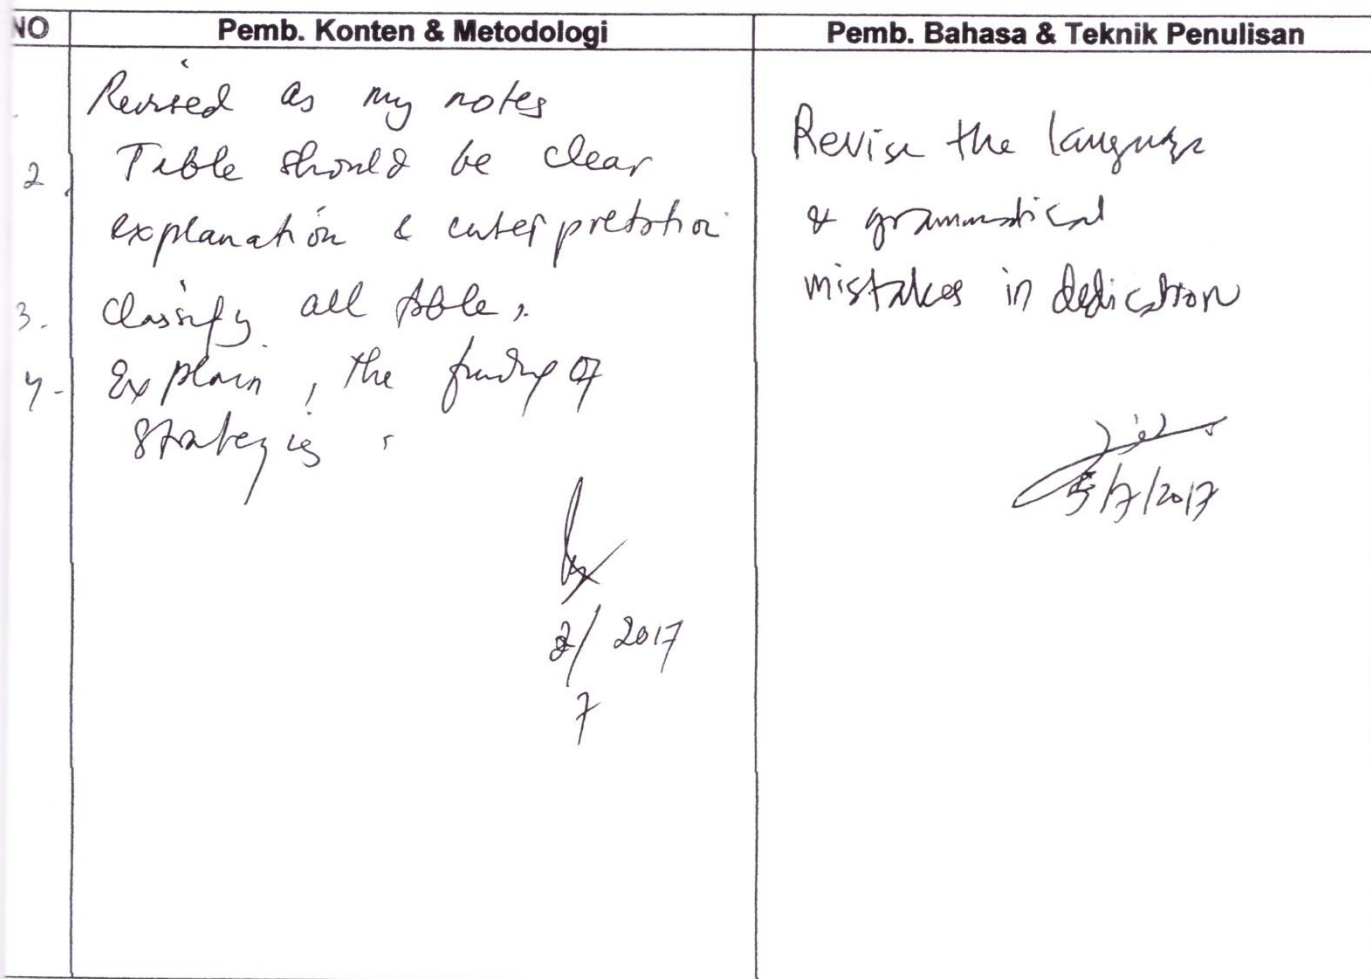 NO Pemb. Konten & Metodologi Pemb. Bahasa & Teknik Penulisan
Revised as my notes
2. Table should be clear
explanation & interpretation
3. Classify all table.
4- Explain, the finding of
strategies.
2/7 2017
Revise the language
& grammatical
mistakes in dedication
5/7/2017